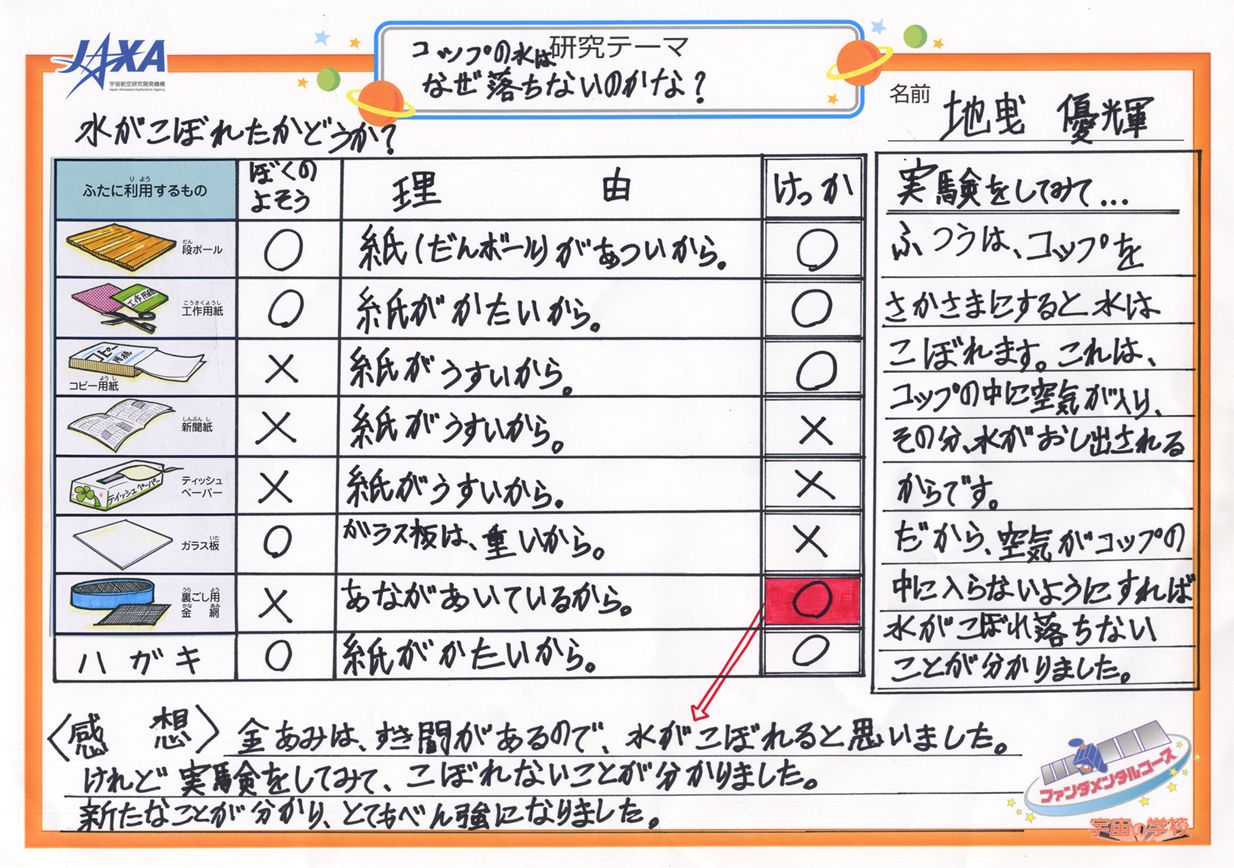 JAXA
宇宙航空研究開発機構
Japan Aerospace Exploration Agency
研究テーマ
コップの水は
なぜ落ちないのかな?
名前 地曳 優輝
水がこぼれたかどうか?
ふたに利用するもの ぼくのよそう 理由 けっか
段ボール ○ 紙(だんボール)があついから。 ○
工作用紙 ○ 紙がかたいから。 ○
コピー用紙 × 紙がうすいから。 ○
新聞紙 × 紙がうすいから。 ×
ティッシュペーパー × 紙がうすいから。 ×
ガラス板 ○ ガラス板は、重いから。 ×
裏ごし用金網 × あながあいているから。 ○
ハガキ ○ 紙がかたいから。 ○
実験をしてみて…
ふつうは、コップを
さかさまにすると水は
こぼれます。これは、
コップの中に空気が入り、
その分、水がおし出される
からです。
だから、空気がコップの
中に入らないようにすれば
水がこぼれ落ちない
ことが分かりました。
〈感想〉 金あみは、すき間があるので、水がこぼれると思いました。
けれど実験をしてみて、こぼれないことが分かりました。
新たなことが分かり、とてもべん強になりました。
ファンダメンタルコース
宇宙の学校